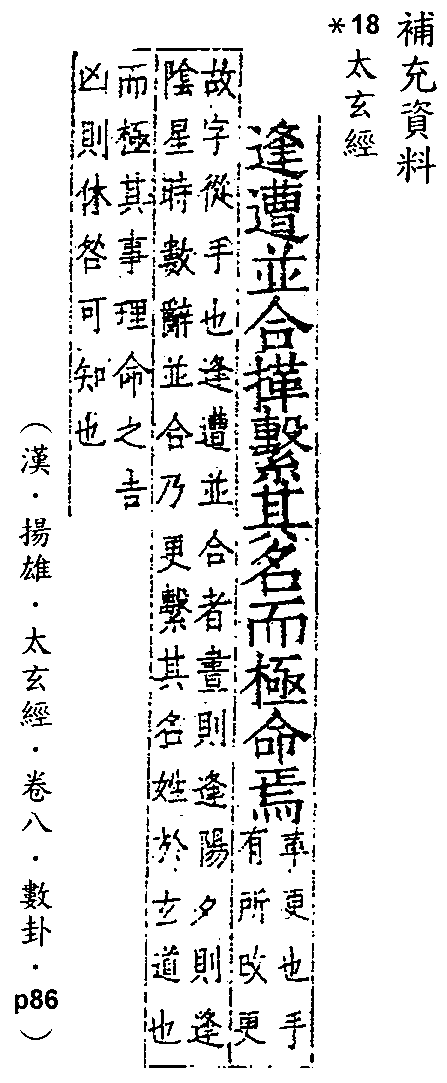 補充資料
*18 太玄經
逢遭並合繫其名而極命焉
革更也手
有所改更
故字從手也逢遭並合者晝則逢陽夕則逢
陰星時數辭並合乃更繫其名姓於玄道也
而極其事理命之吉
凶則休咎可知也
(漢·揚雄·太玄經·卷八·數卦·p86)